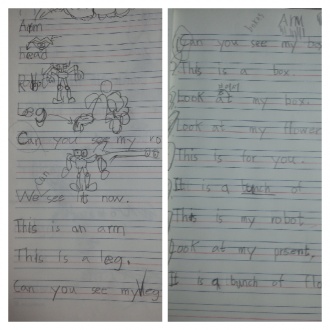 Arm
head
Leg
Can you see my ro
We can see its now.
This is an arm
This is a leg.
Can you see my leg
Arm
Can you see my box
This is a box.
Look at my box.
Look at my flower
This is for you.
It is a bunch of
This is my robot
Look at my present,
It is a bunch of flo